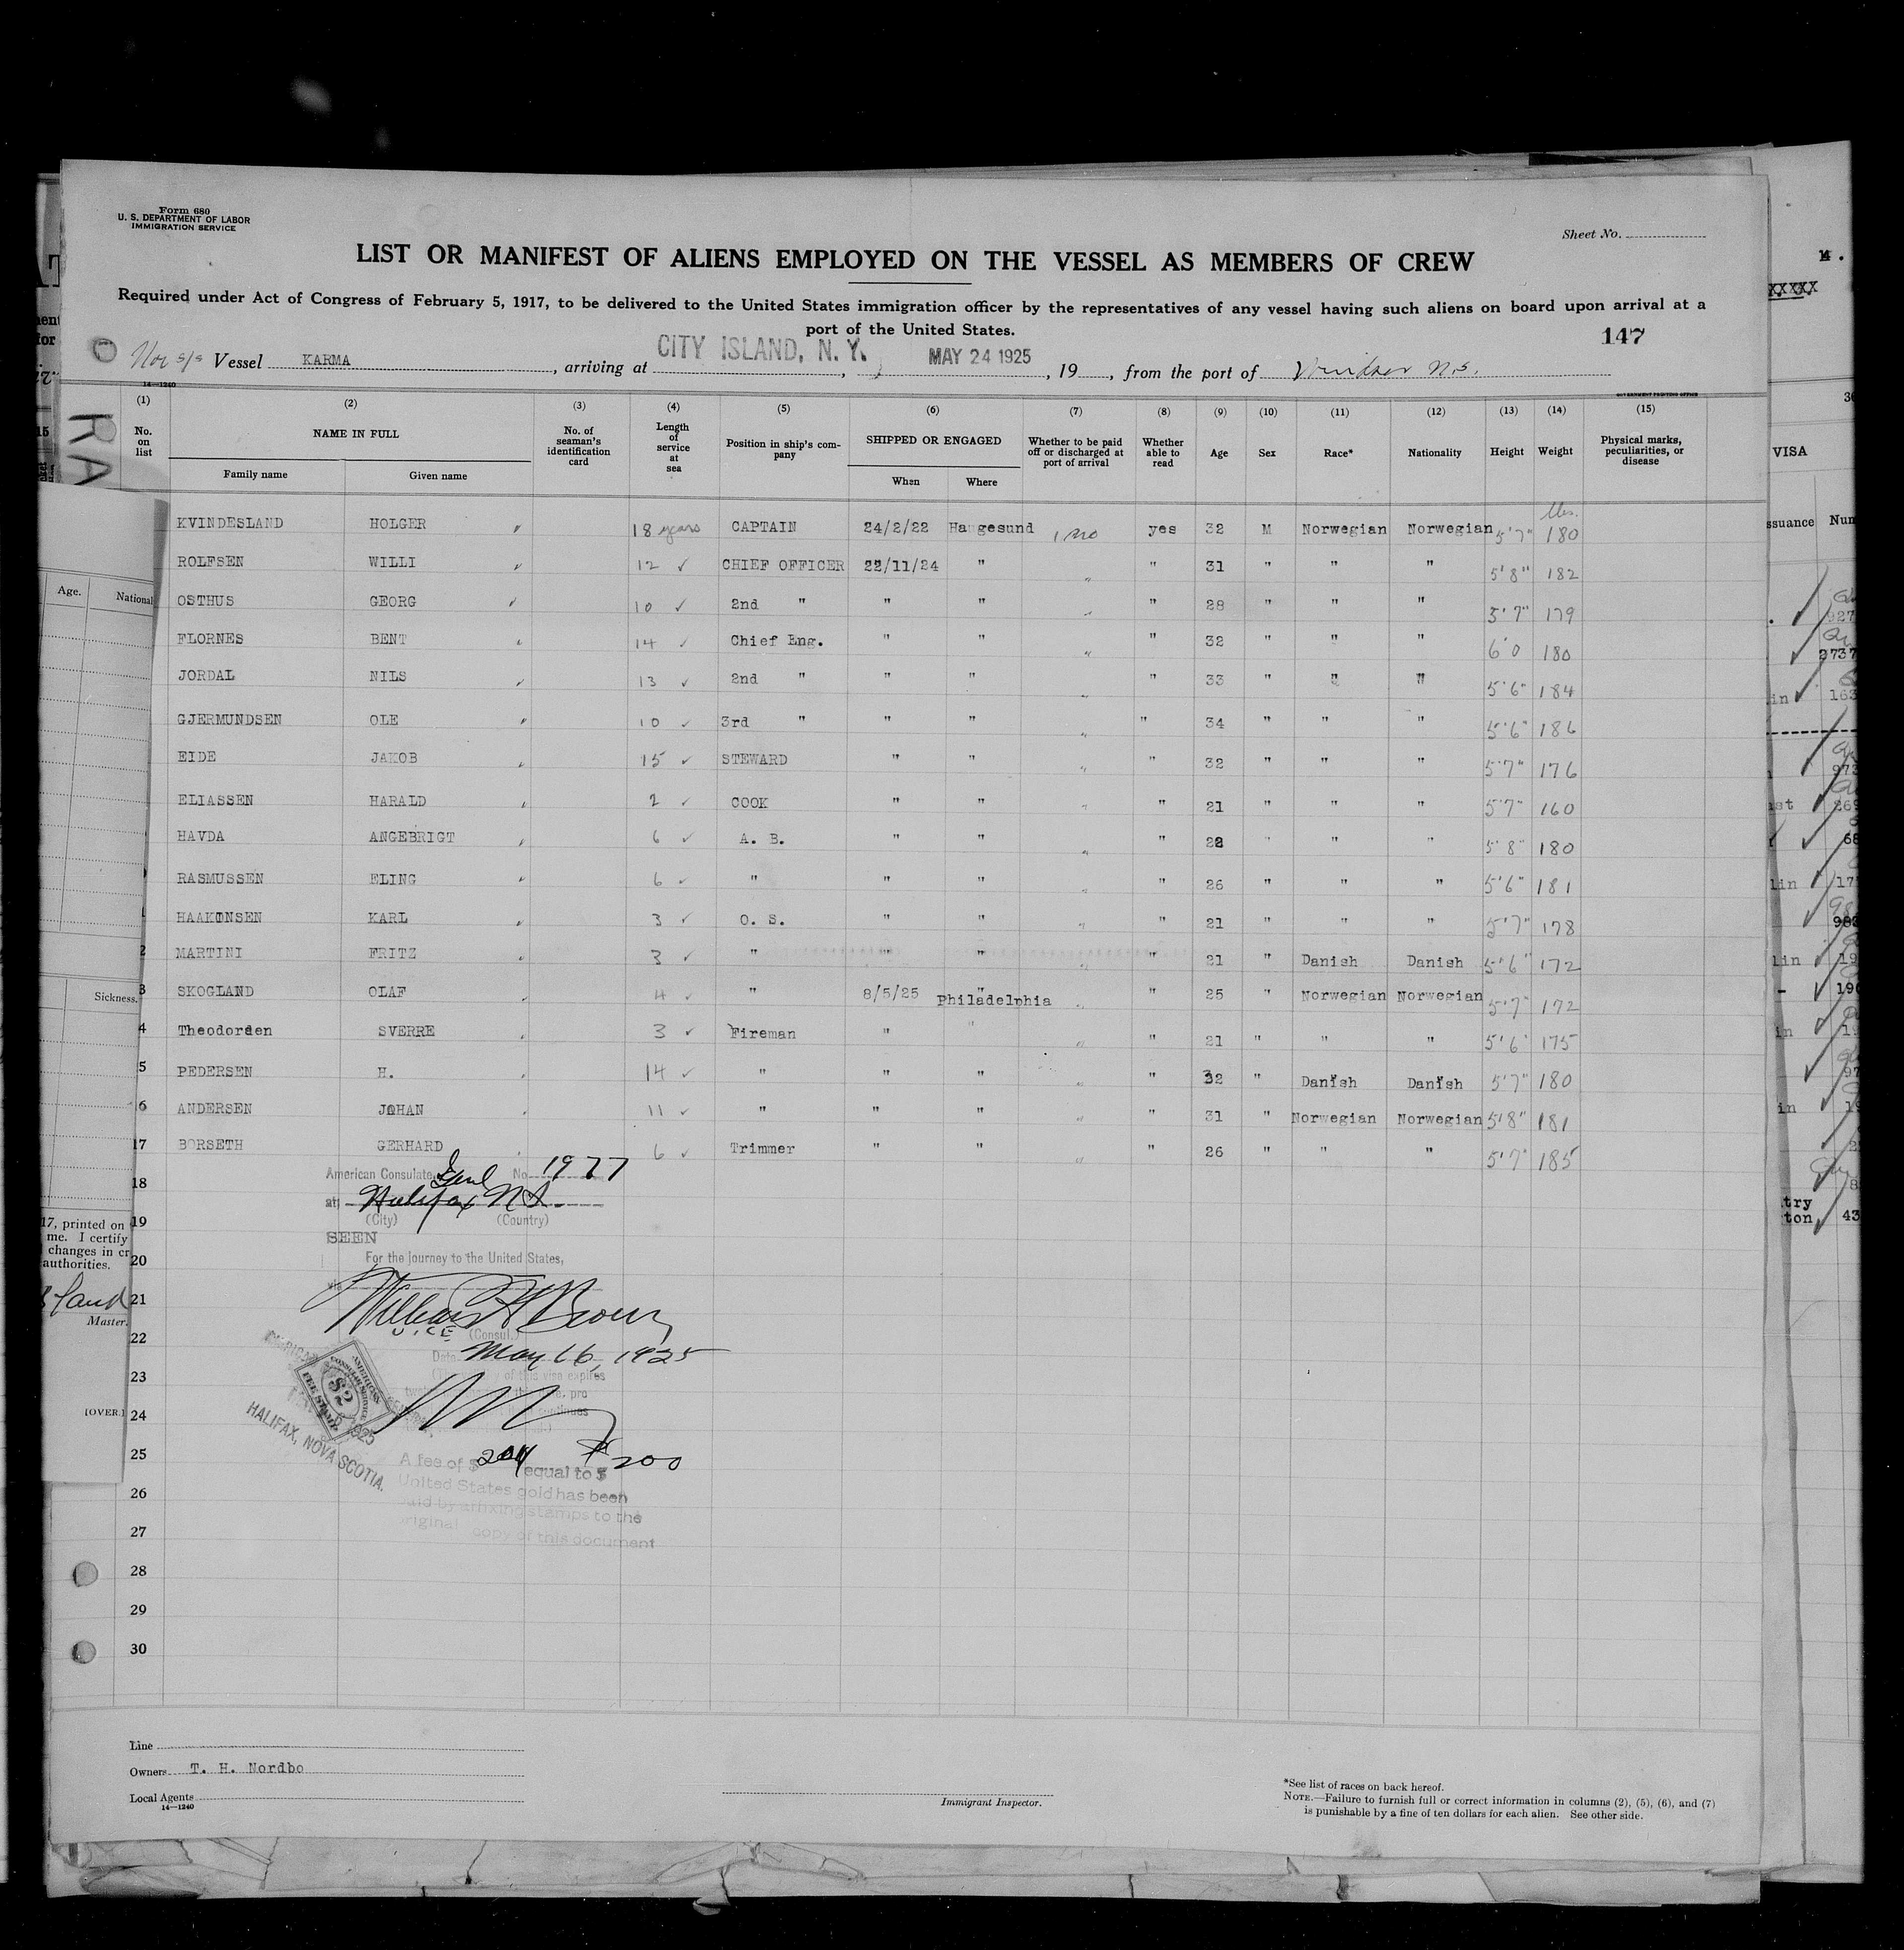 Form 680
U. S. DEPARTMENT OF LABOR
IMMIGRATION SERVICE
Sheet No.
LIST OR MANIFEST OF ALIENS EMPLOYED ON THE VESSEL AS MEMBERS OF CREW
Required under Act of Congress of February 5, 1917, to be delivered to the United States immigration officer by the representatives of any vessel having such aliens on board upon arrival at a
port of the United States.
147
Nor s/s Vessel KARMA, arriving at CITY ISLAND, N. Y., MAY 24 1925, 19, from the port of Windsor N.S.
14—1240 GOVERNMENT PRINTING OFFICE
(1) (2) (3) (4) (5) (6) (7) (8) (9) (10) (11) (12) (13) (14) (15)
No. on list NAME IN FULL Family name Given name No. of seaman's identification card Length of service at sea Position in ship's company SHIPPED OR ENGAGED When Where Whether to be paid off or discharged at port of arrival Whether able to read Age Sex Race* Nationality Height Weight Physical marks, peculiarities, or disease
lbs.
KVINDESLAND HOLGER 18 years CAPTAIN 24/2/22 Haugesund no yes 32 M Norwegian Norwegian 5'7" 180
ROLFSEN WILLI 12 ✓ CHIEF OFFICER 22/11/24 " " " 31 " " " 5'8" 182
OSTHUS GEORG 10 ✓ 2nd " " " " " 28 " " " 5'7" 179
FLORNES BENT 14 ✓ Chief Eng. " " " " 32 " " " 6'0 180
JORDAL NILS 13 ✓ 2nd " " " " " 33 " " " 5'6" 184
GJERMUNDSEN OLE 10 ✓ 3rd " " " " " 34 " " " 5'6" 186
EIDE JAKOB 15 ✓ STEWARD " " " " 32 " " " 5'7" 176
ELIASSEN HARALD 2 ✓ COOK " " " " 21 " " " 5'7" 160
HAVDA ANGEBRIGT 6 ✓ A. B. " " " " 28 " " " 5'8" 180
RASMUSSEN ELING 6 ✓ " " " " " 26 " " " 5'6" 181
HAAKONSEN KARL 3 ✓ O. S. " " " " 21 " " " 5'7" 178
2 MARTINI FRITZ 3 ✓ " " " " " 21 " Danish Danish 5'6" 172
3 SKOGLAND OLAF 4 ✓ " 8/5/25 Philadelphia " " 25 " Norwegian Norwegian 5'7" 172
4 Theodorsen SVERRE 3 ✓ Fireman " " " " 21 " " " 5'6" 175
5 PEDERSEN H. 14 ✓ " " " " " 32 " Danish Danish 5'7" 180
6 ANDERSEN JOHAN 11 ✓ " " " " " 31 " Norwegian Norwegian 5'8" 181
17 BORSETH GERHARD 6 ✓ Trimmer " " " " 26 " " " 5'7" 185
American Consulate Genl No. 1977
18
at Halifax N.S.
19
(City) (Country)
SEEN
20
For the journey to the United States,
via
21
William H Brown
VICE (Consul.)
22
Date May 16, 1925
of this visa expires
23
AMERICAN CONSULAR SERVICE $2 FEE STAMP
24
1925
HALIFAX, NOVA SCOTIA.
25
A fee of $ equal to $ 200
26
United States gold has been
paid by affixing stamps to the
27
original copy of this document
28
29
30
Line
Owners T. H. Nordbo
Local Agents
14—1240
Immigrant Inspector.
*See list of races on back hereof.
NOTE.—Failure to furnish full or correct information in columns (2), (5), (6), and (7)
is punishable by a fine of ten dollars for each alien. See other side.
RA
Age. National
Sickness.
17, printed on
me. I certify
changes in cr
authorities.
Master.
[OVER.]
XXXXX
VISA
ssuance Num